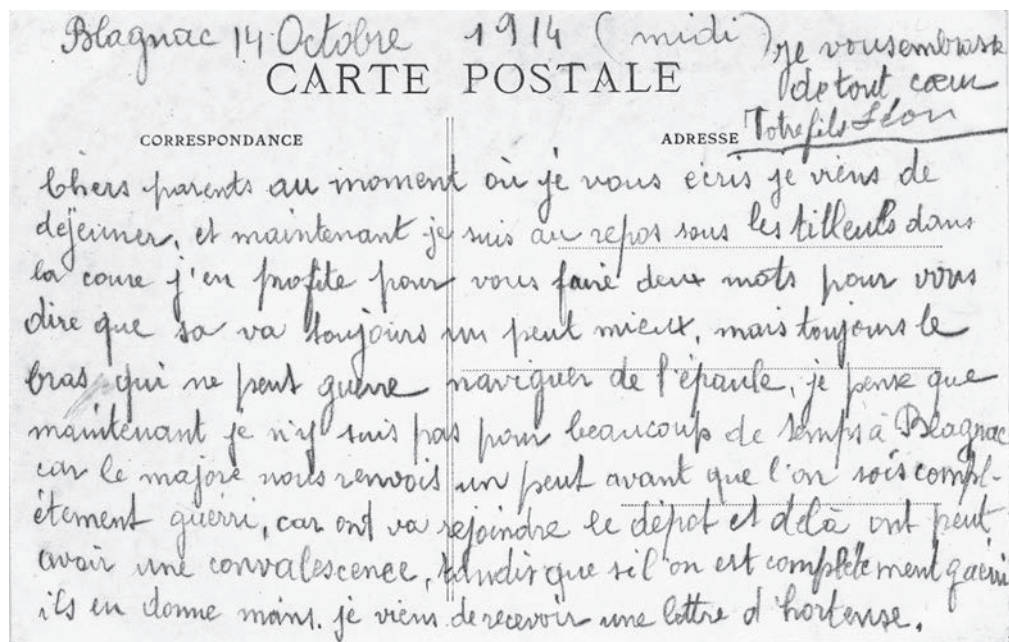 Blagnac 14 Octobre 1914 (midi)
je vous embrasse
de tout cœur
Votre fils Léon
CARTE POSTALE
CORRESPONDANCE
ADRESSE
Chers parents au moment où je vous ecris je viens de
déjeuner, et maintenant je suis au repos sous les tilleuls dans
la coure j'en profite pour vous faire deux mots pour vous
dire que sa va toujours un peut mieux, mais toujours le
bras qui ne peut guerre naviguer de l'épaule, je pense que
maintenant je n'y suis pas pour beaucoup de temps à Blagnac
car le majore nous renvois un peut avant que l'on sois compl-
ètement guerri, car ont va rejoindre le dépot et delà ont peut
avoir une convalescence, tandis que si l'on est complètement guerri
ils en donne moins. je viens de recevoir une lettre d'hortense.